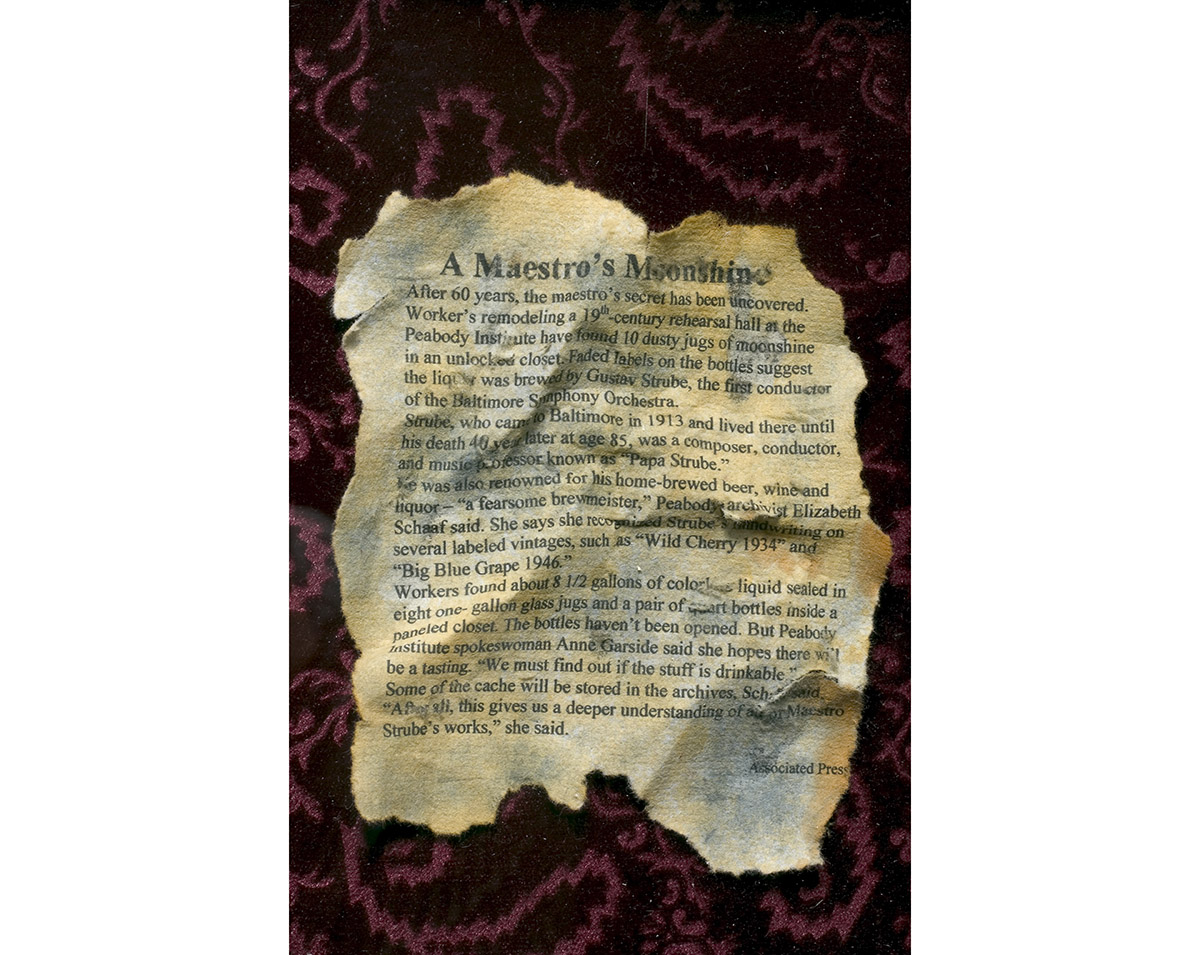 A Maestro's Moonshine
After 60 years, the maestro's secret has been uncovered.
Worker's remodeling a 19th-century rehearsal hall at the
Peabody Institute have found 10 dusty jugs of moonshine
in an unlocked closet. Faded labels on the bottles suggest
the liquor was brewed by Gustav Strube, the first conductor
of the Baltimore Symphony Orchestra.
Strube, who came to Baltimore in 1913 and lived there until
his death 40 years later at age 85, was a composer, conductor,
and music professor known as “Papa Strube.”
He was also renowned for his home-brewed beer, wine and
liquor – “a fearsome brewmeister,” Peabody archivist Elizabeth
Schaaf said. She says she recognized Strube's handwriting on
several labeled vintages, such as “Wild Cherry 1934” and
“Big Blue Grape 1946.”
Workers found about 8 1/2 gallons of colorless liquid sealed in
eight one- gallon glass jugs and a pair of quart bottles inside a
paneled closet. The bottles haven't been opened. But Peabody
Institute spokeswoman Anne Garside said she hopes there will
be a tasting. “We must find out if the stuff is drinkable.”
Some of the cache will be stored in the archives, Schaaf said.
“After all, this gives us a deeper understanding of all of Maestro
Strube's works,” she said.
Associated Press